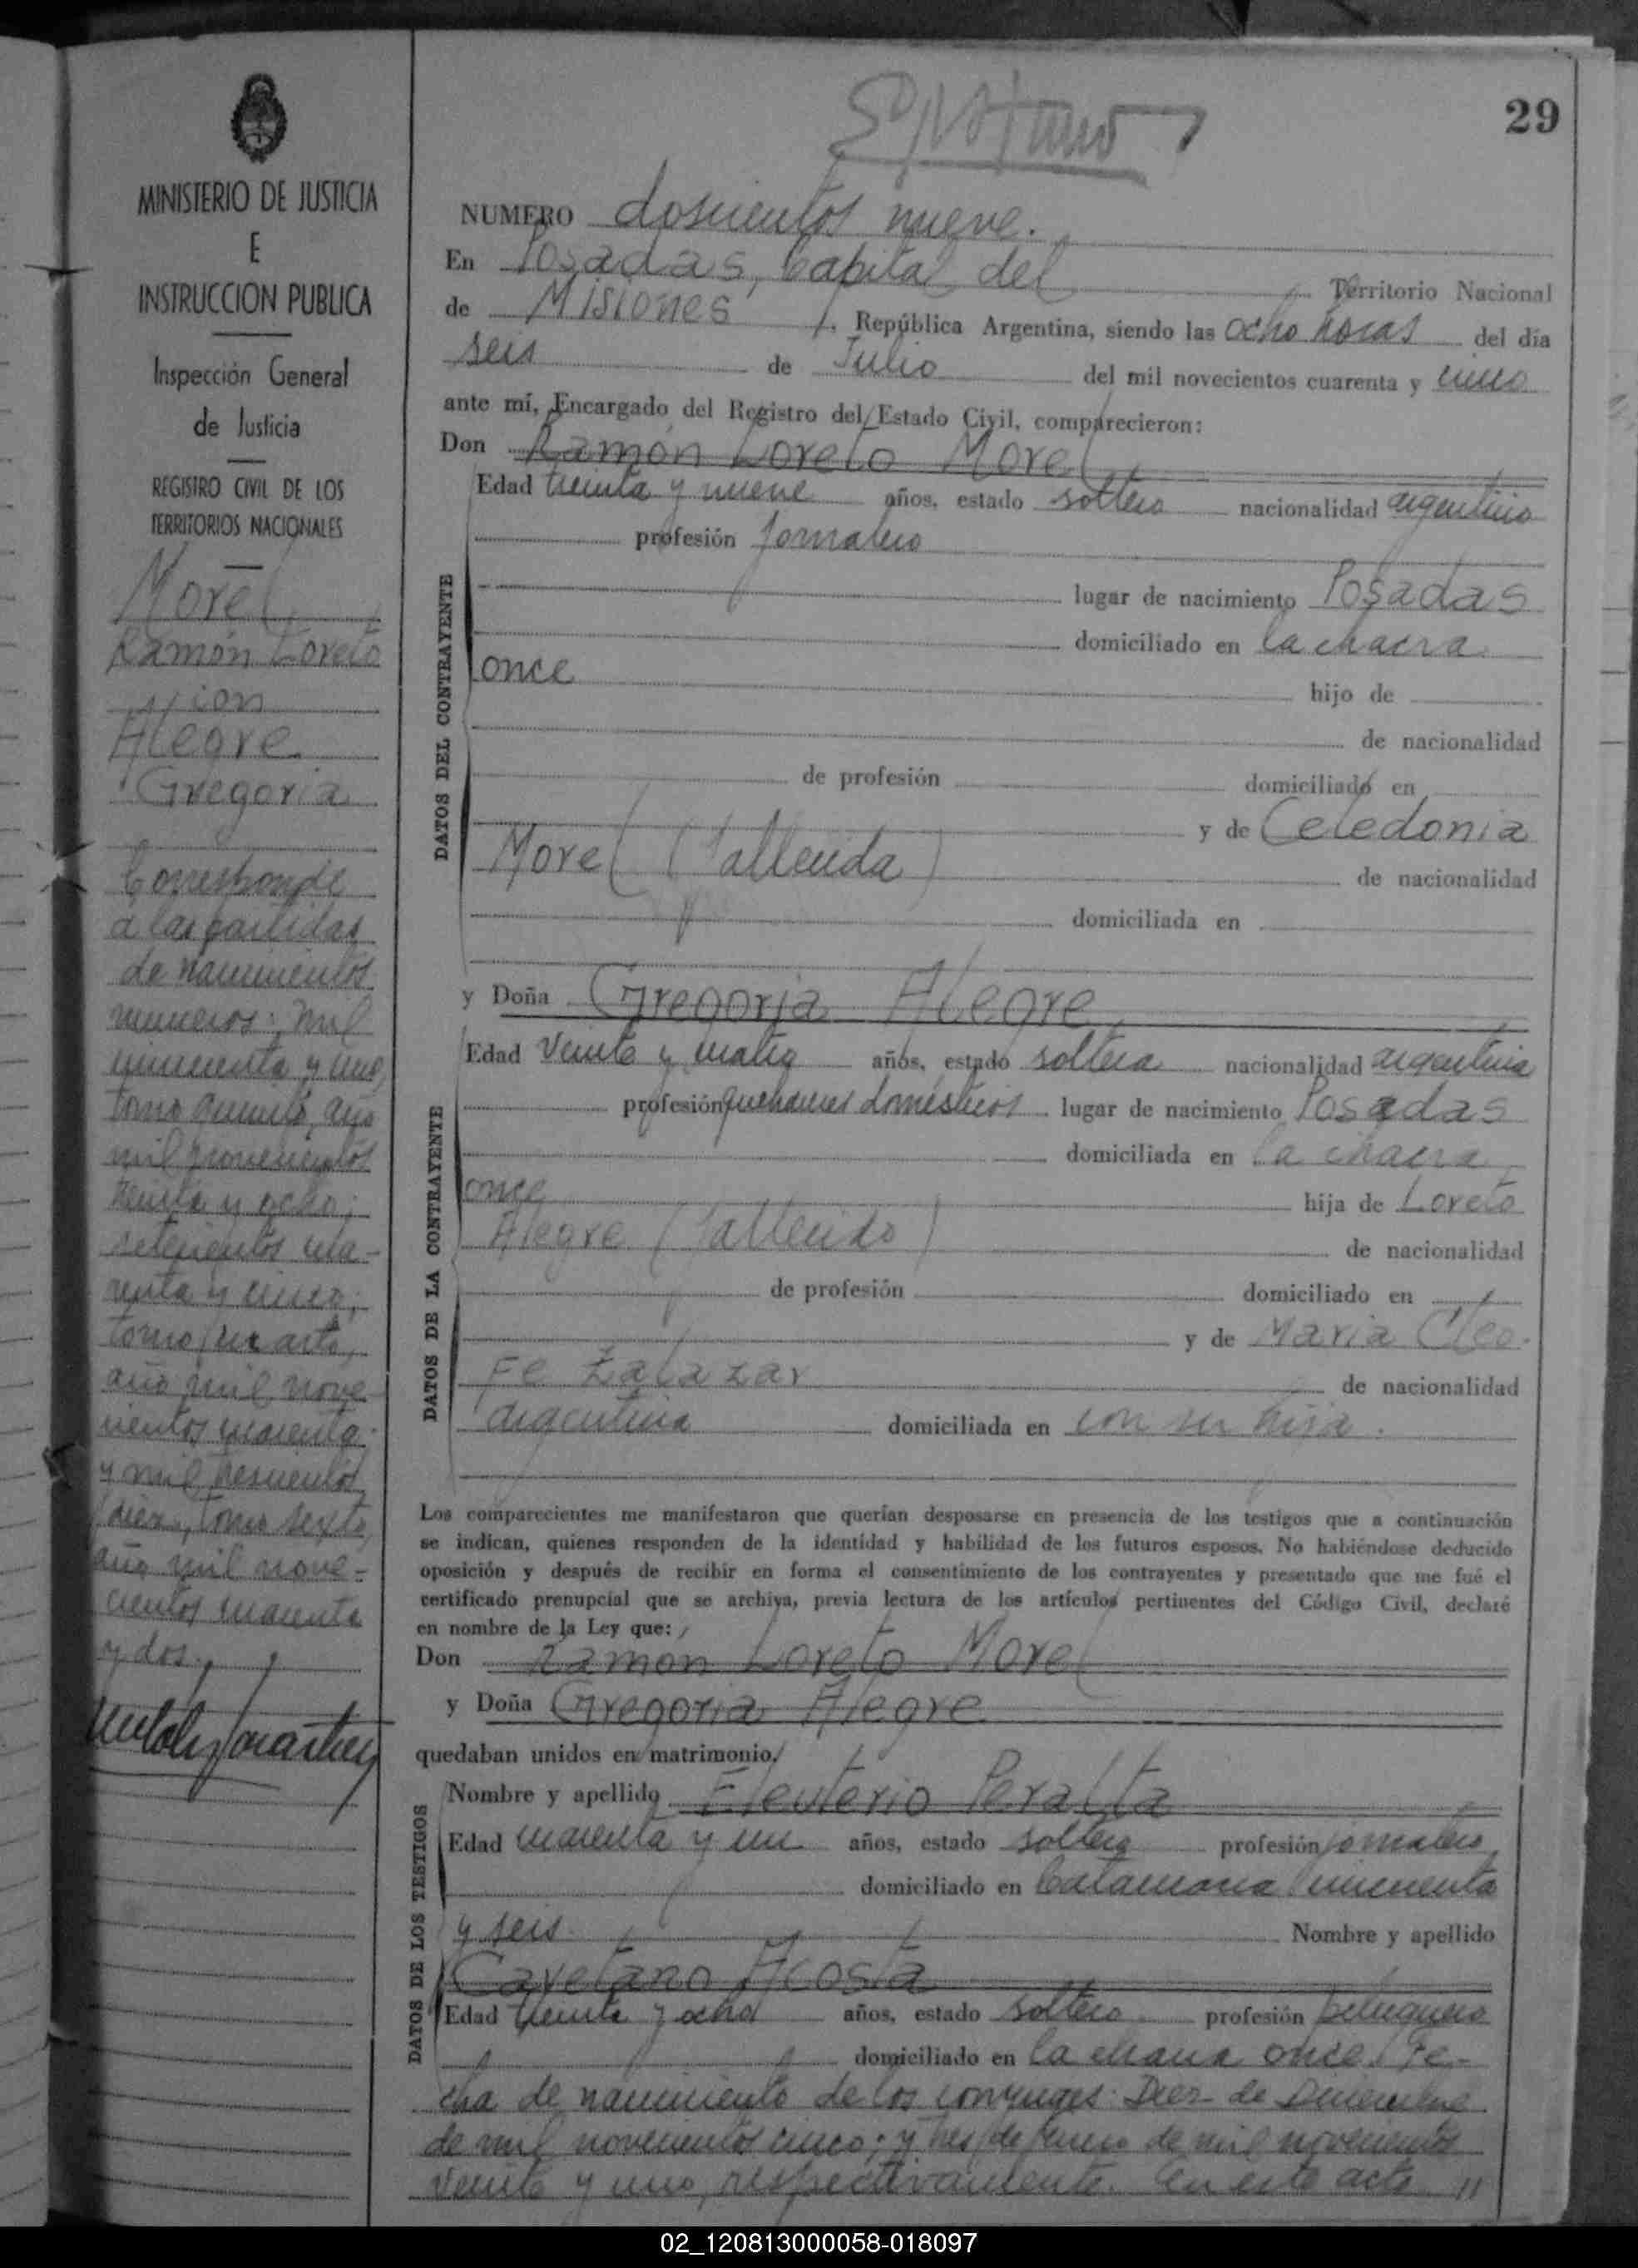 29
MINISTERIO DE JUSTICIA
E
INSTRUCCION PUBLICA
Inspección General
de Justicia
REGISTRO CIVIL DE LOS
TERRITORIOS NACIONALES
Morel
Ramón Loreto
con
Alegre
Gregoria
Corresponde
a las partidas
de nacimientos
números: mil
cincuenta y uno,
tomo quinto, año
mil novecientos
treinta y ocho;
setecientos cua-
renta y cinco,
tomo cuarto,
año mil nove
cientos cuarenta
y mil trescientos
diez, tomo sexto,
año mil nove-
cientos cuarenta
y dos.
NUMERO doscientos nueve.
En Posadas, Capital del Territorio Nacional
de Misiones, República Argentina, siendo las ocho horas del día
seis de Julio del mil novecientos cuarenta y cinco
ante mí, Encargado del Registro del Estado Civil, comparecieron:
Don Ramón Loreto Morel
DATOS DEL CONTRAYENTE
Edad treinta y nueve años, estado soltero nacionalidad argentino
profesión jornalero
lugar de nacimiento Posadas
domiciliado en la chacra
once hijo de
de nacionalidad
de profesión domiciliado en
y de Celedonia
Morel (fallecida) de nacionalidad
domiciliada en
y Doña Gregoria Alegre
DATOS DE LA CONTRAYENTE
Edad veinte y cuatro años, estado soltera nacionalidad argentina
profesión quehaceres domésticos lugar de nacimiento Posadas
domiciliada en la chacra
once hija de Loreto
Alegre (fallecido) de nacionalidad
de profesión domiciliado en
y de María Cleo-
Fe Zalazar de nacionalidad
argentina domiciliada en con su hija.
Los comparecientes me manifestaron que querían desposarse en presencia de los testigos que a continuación
se indican, quienes responden de la identidad y habilidad de los futuros esposos. No habiéndose deducido
oposición y después de recibir en forma el consentimiento de los contrayentes y presentado que me fué el
certificado prenupcial que se archiva, previa lectura de los artículos pertinentes del Código Civil, declaré
en nombre de la Ley que:
Don Ramón Loreto Morel
y Doña Gregoria Alegre
quedaban unidos en matrimonio.
DATOS DE LOS TESTIGOS
Nombre y apellido Eleuterio Peralta
Edad cuarenta y un años, estado soltero profesión jornalero
domiciliado en Catamarca cincuenta
y seis. Nombre y apellido
Cayetano Acosta
Edad treinta y ocho años, estado soltero profesión peluquero
domiciliado en la chacra once. Fe-
cha de nacimiento de los conyuges: Diez de Diciembre
de mil novecientos cinco; y tres de Enero de mil novecientos
veinte y uno, respectivamente. En este acto //
02_120813000058-018097